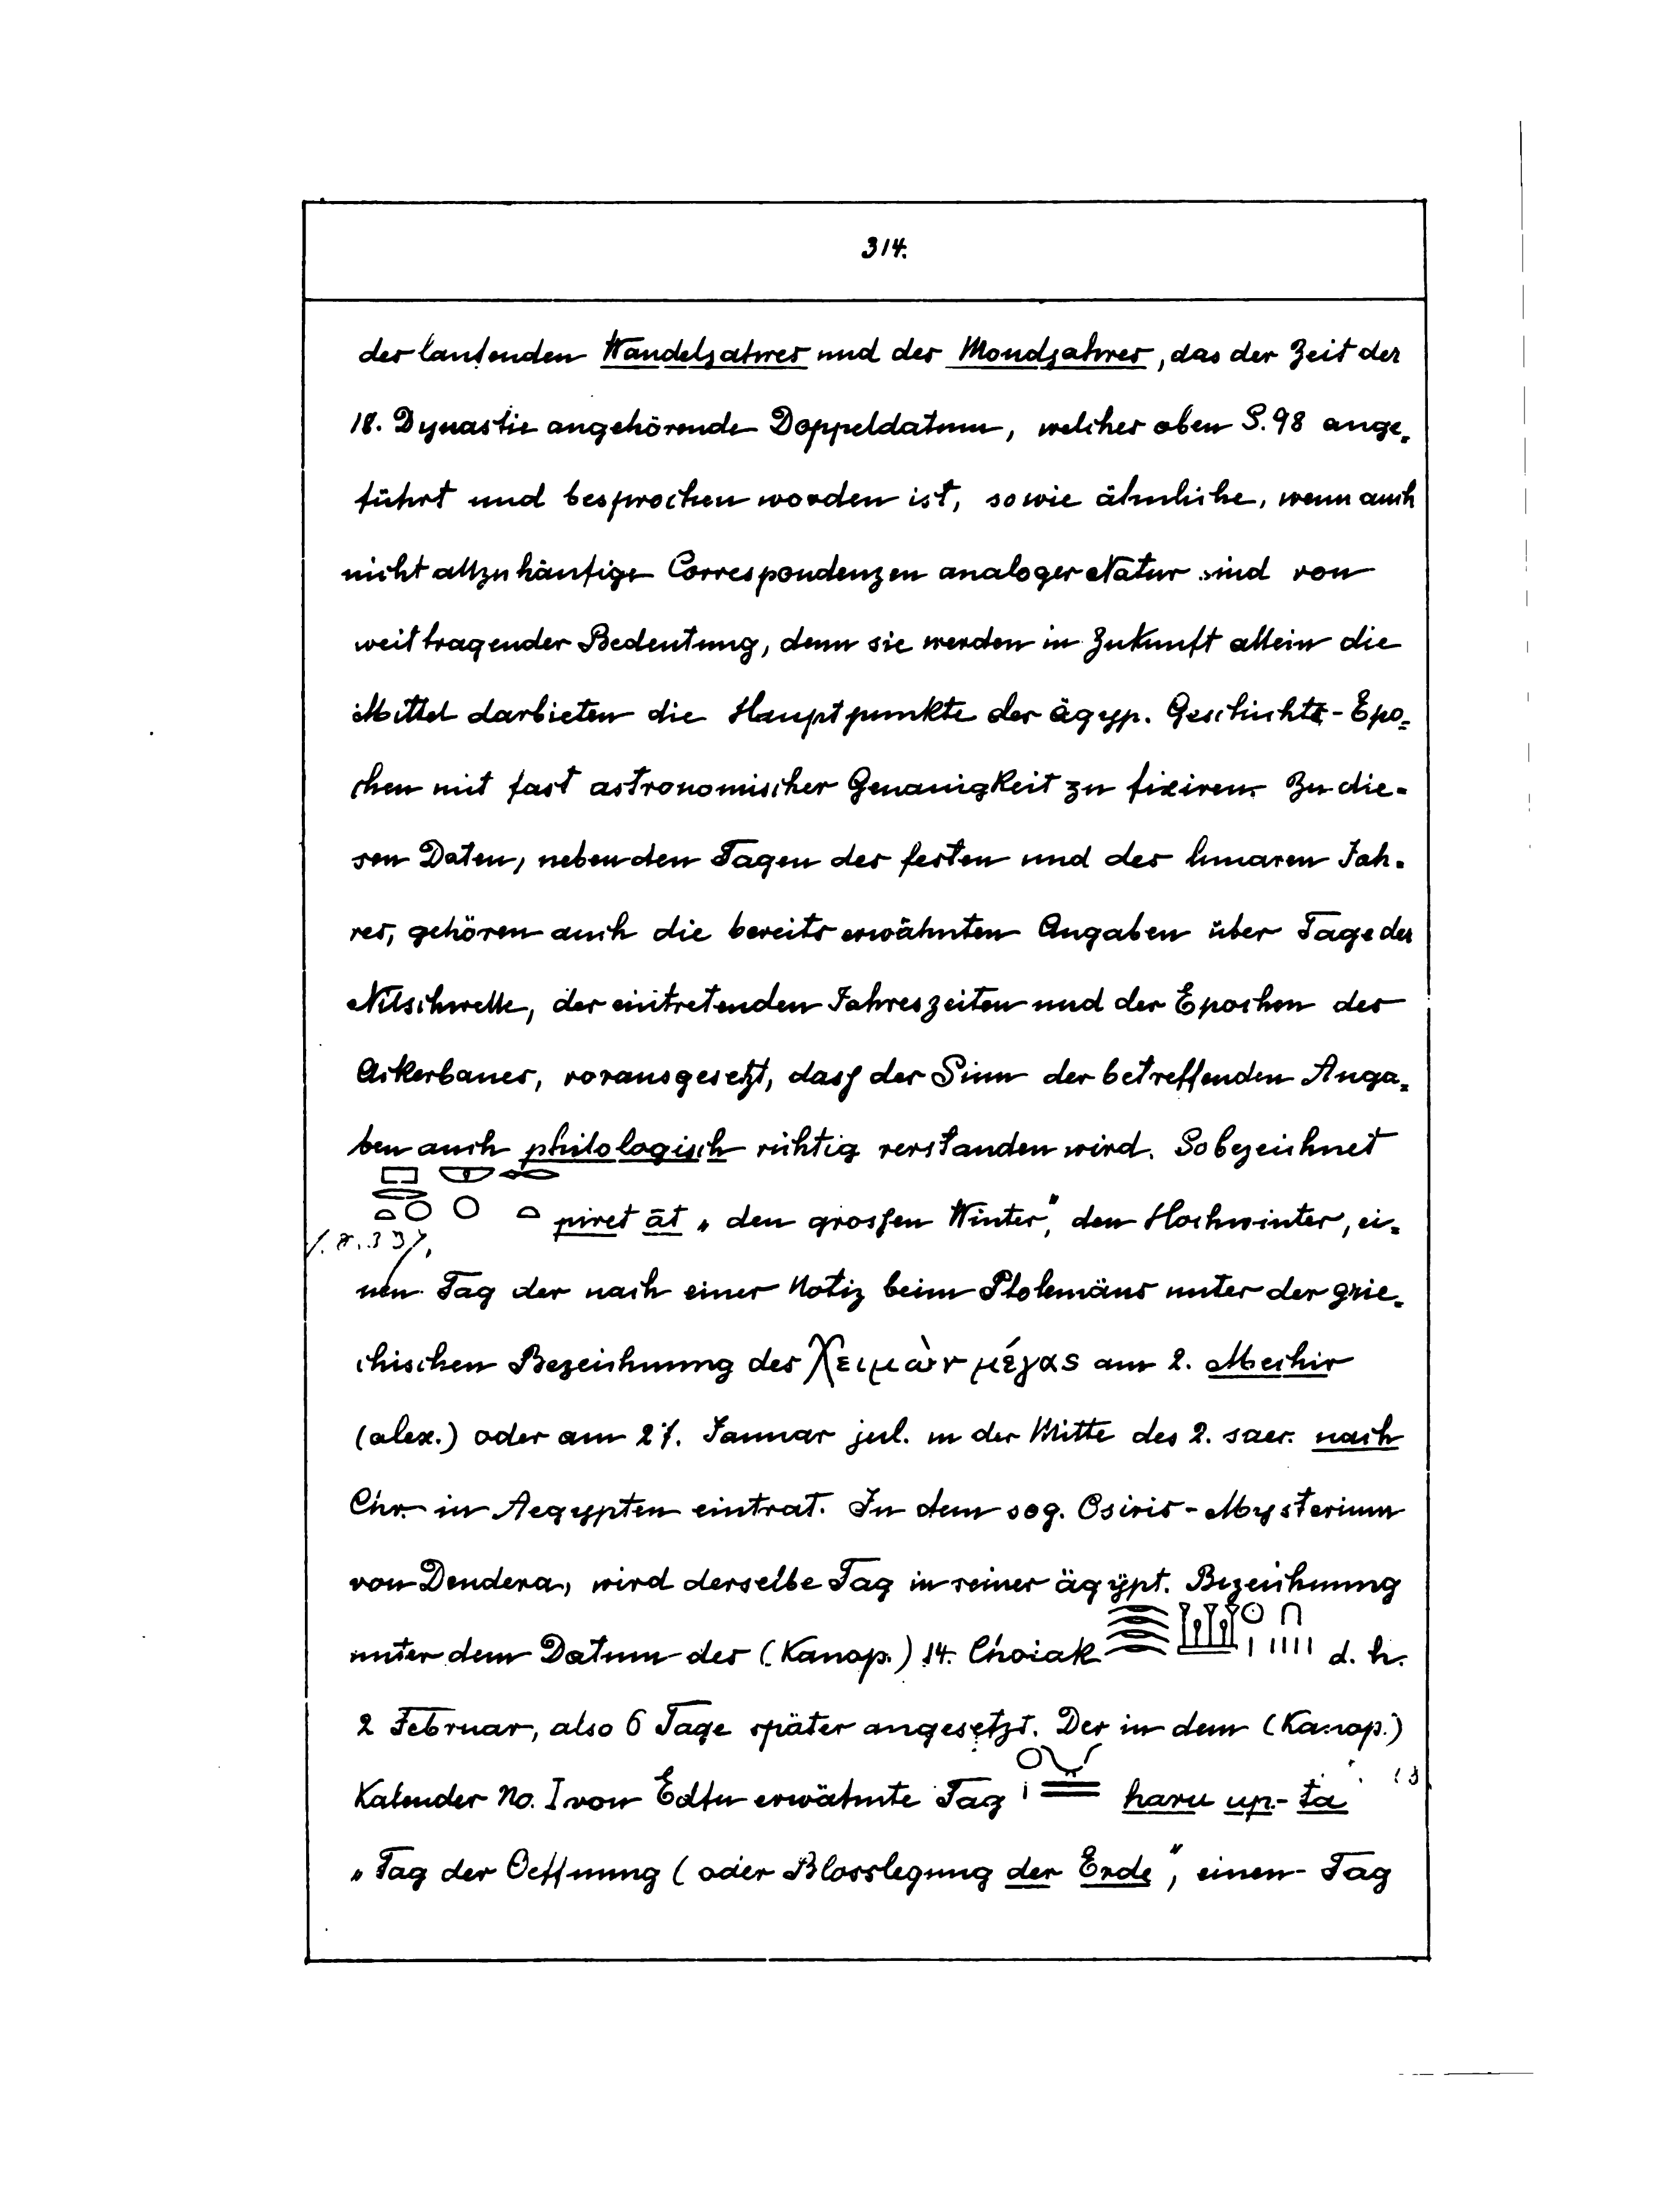 314.
des laufenden Wandeljahres und des Mondjahres, das der Zeit der
18. Dynastie angehörende Doppeldatum, welches oben S. 98 ange-
führt und besprochen worden ist, sowie ähnliche, wenn auch
nicht allzu häufige Correspondenzen analoger Natur sind von
weittragender Bedeutung, denn sie werden in Zukunft allein die
Mittel darbieten die Hauptpunkte der ägyp. Geschichts-Epo-
chen mit fast astronomischer Genauigkeit zu fixiren. Zu die-
sen Daten, neben den Tagen des festen und des lunaren Jah-
res, gehören auch die bereits erwähnten Angaben über Tage der
Nilschwelle, der eintretenden Jahreszeiten und der Epochen des
Ackerbaues, vorausgesetzt, dass der Sinn der betreffenden Anga-
ben auch philologisch richtig verstanden wird. So bezeichnet
piret āt „den grossen Winter", den Hochwinter, ei-
nen Tag der nach einer Notiz beim Ptolemäus unter der grie-
chischen Bezeichnung des Χειμὼν μέγας am 2. Mechir
(alex.) oder am 27. Januar jul. in der Mitte des 2. saec. nach
Chr. in Aegypten eintrat. In dem sog. Osiris-Mysterium
von Dendera, wird derselbe Tag in seiner ägypt. Bezeichnung
unter dem Datum des (Kanop.) 14. Choiak d. h.
2 Februar, also 6 Tage später angesetzt. Der in dem (Kanop.)
Kalender No. I von Edfu erwähnte Tag haru up-ta
„Tag der Oeffnung (oder Blosslegung der Erde", einen Tag